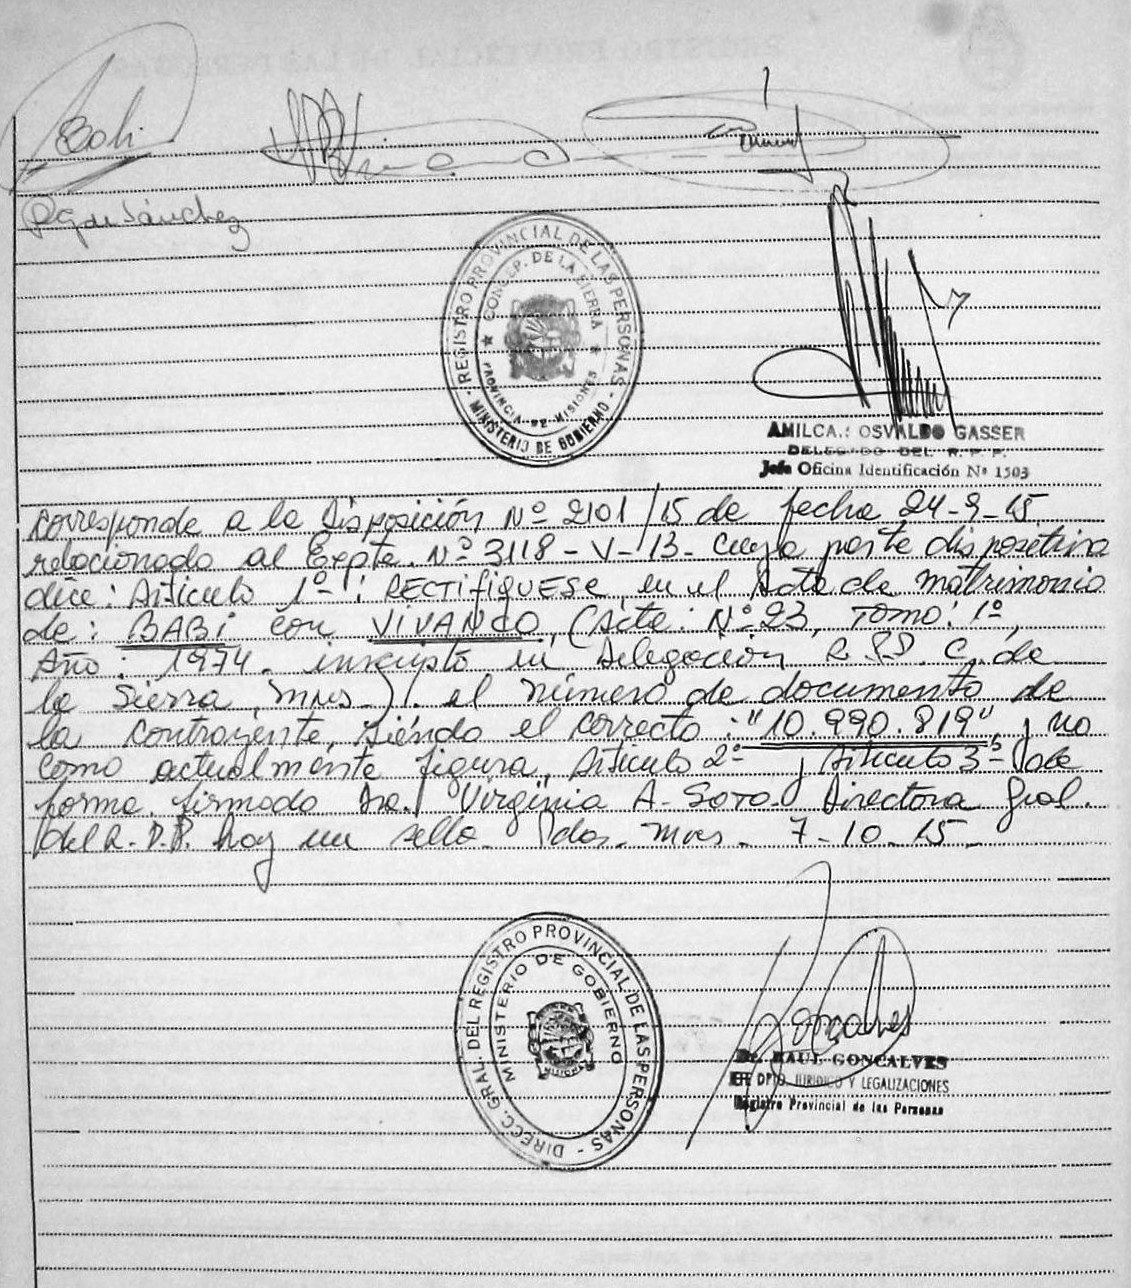 Babi
P G de Sánchez
REGISTRO PROVINCIAL DE LAS PERSONAS - MINISTERIO DE GOBIERNO -
★ CONCEP. DE LA SIERRA ★
PROVINCIA DE MISIONES
AMILCA.: OSVALDO GASSER
DELEGADO DEL R. P. P.
Jefe Oficina Identificación Nº 1503
corresponde a la Disposición Nº 2101/15 de fecha 24-9-15
relacionado al Expte. Nº 3118-V-13- cuya parte dispositiva
dice: Artículo 1º: RECTIFIQUESE, en el Acta de matrimonio
de: BABI con VIVANCO, (Acta: Nº 23, Tomo: 1º,
Año: 1974. inscripto en Delegación R.P.P. C. de
la Sierra, Mnes). el número de documento de
la contrayente, siéndo el correcto: "10.990.819", y no
como actualmente figura, Artículo 2º y Artículo 3º de
forma. firmado Dra. Virginia A. Soto. Directora Gral.
del R.P.P. hay un sello. Pdas. Mnes. 7-10-15-
DIRECC. GRAL. DEL REGISTRO PROVINCIAL DE LAS PERSONAS -
MINISTERIO DE GOBIERNO
Goncalves
Dr. RAUL GONCALVES
JEFE DPTO. JURIDICO Y LEGALIZACIONES
Registro Provincial de las Personas